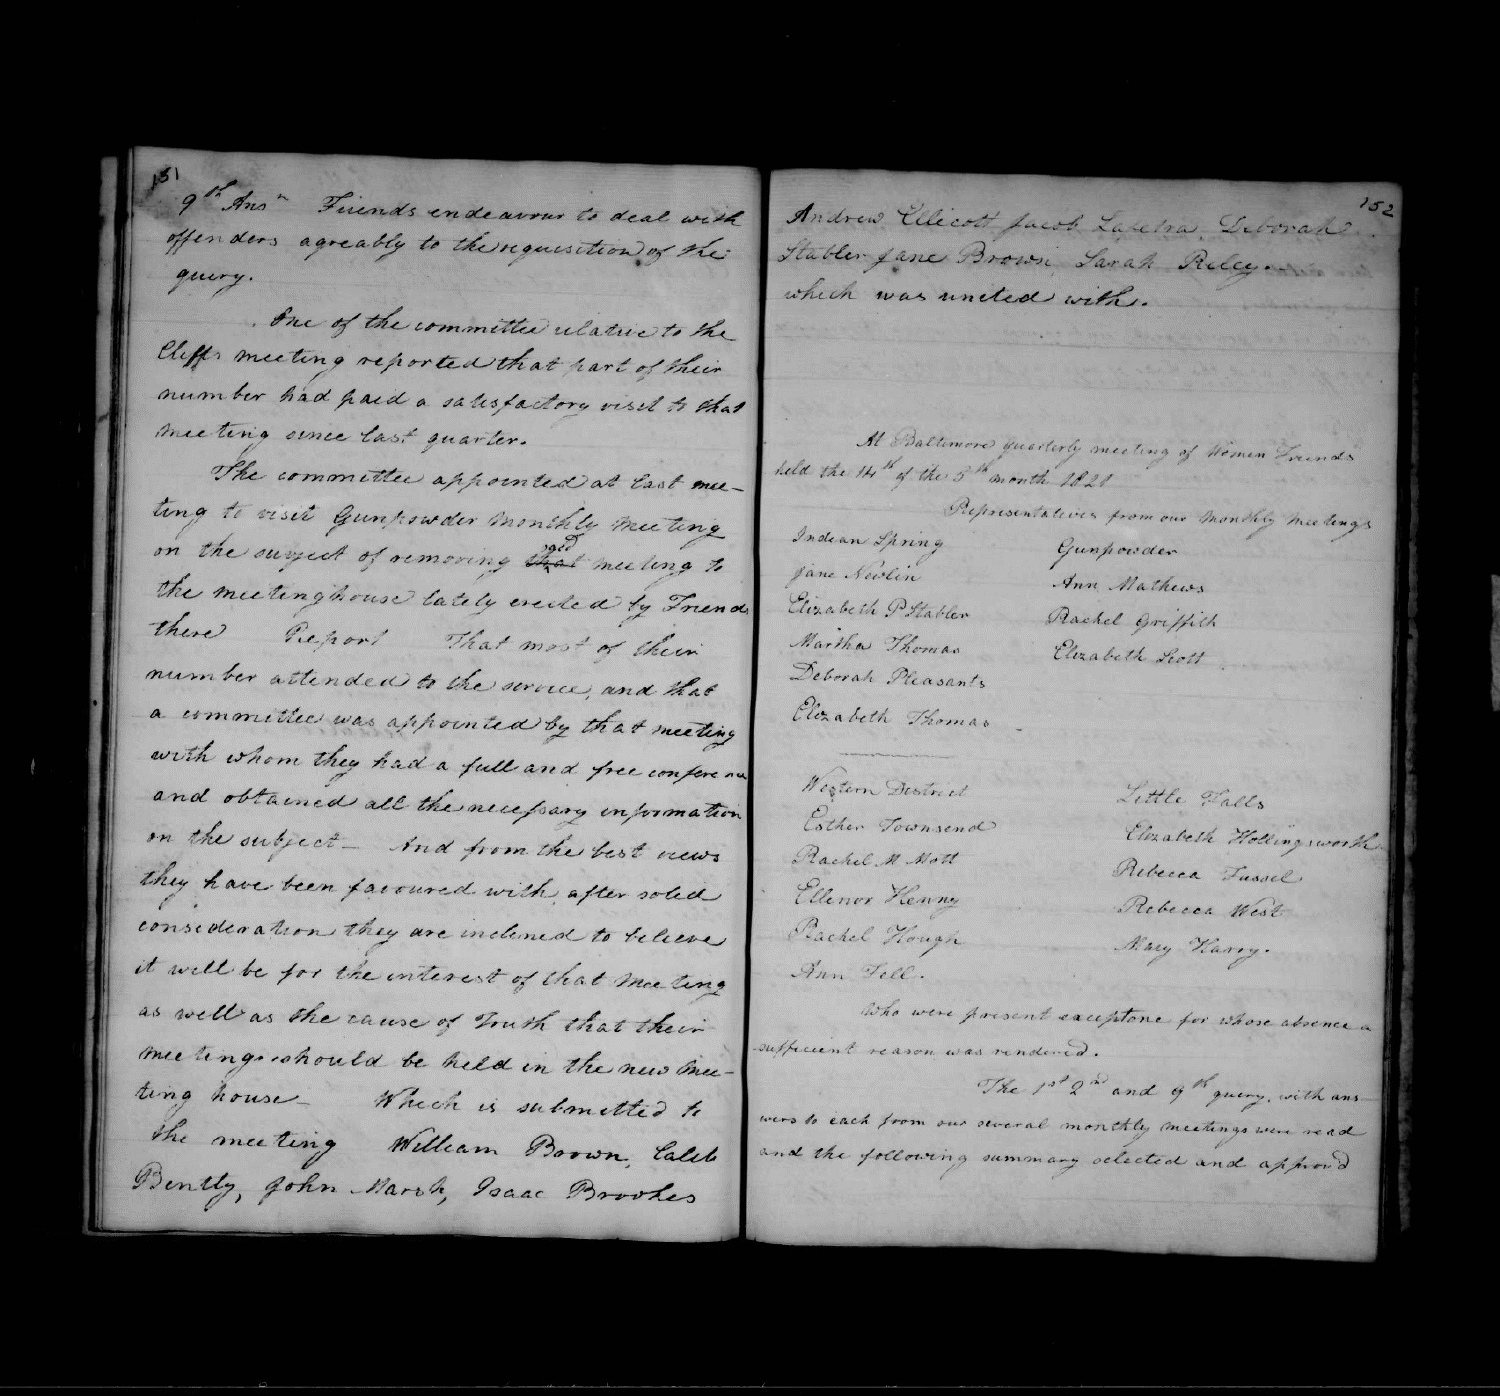 151
9th Ansr Friends endeavour to deal with
offenders agreably to the requisition of the
query.
One of the committee relative to the
Cliffs meeting reported that part of their
number had paid a satisfactory visit to that
meeting since last quarter.
The committee appointed at last mee-
ting to visit Gunpowder Monthly Meeting
said
on the subject of removing that meeting to
the meetinghouse lately erected by Friends
there Report That most of their
number attended to the service, and that
a committee was appointed by that meeting
with whom they had a full and free conference
and obtained all the necessary information
on the subject— And from the best views
they have been favoured with, after solid
consideration they are inclined to believe
it will be for the interest of that Meeting
as well as the cause of Truth that their
meetings should be held in the new Mee-
ting house— Which is submitted to
the meeting William Brown, Caleb
Bently, John Marsh, Isaac Brookes
152
Andrew Ellicott Jacob Lafetra, Deborah
Stabler Jane Brown, Sarah Riley.
which was united with.
At Baltimore quarterly meeting of Women Friends
held the 14th of the 5th month 1821
Representatives from our Monthly Meetings
Indian Spring Gunpowder
Jane Newlin Ann Mathews
Elizabeth P Stabler Rachel Griffith
Martha Thomas Elizabeth Scott
Deborah Pleasants
Elizabeth Thomas
Western District Little Falls
Esther Townsend Elizabeth Hollingsworth
Rachel M Mott Rebecca Fussel
Ellenor Henny Rebecca West
Rachel Hough Mary Harry.
Ann Fell.
Who were present except one for whose absence a
sufficient reason was rendered.
The 1st 2nd and 9th query, with ans
wers to each from our several monthly meetings were read
and the following summary selected and approv'd